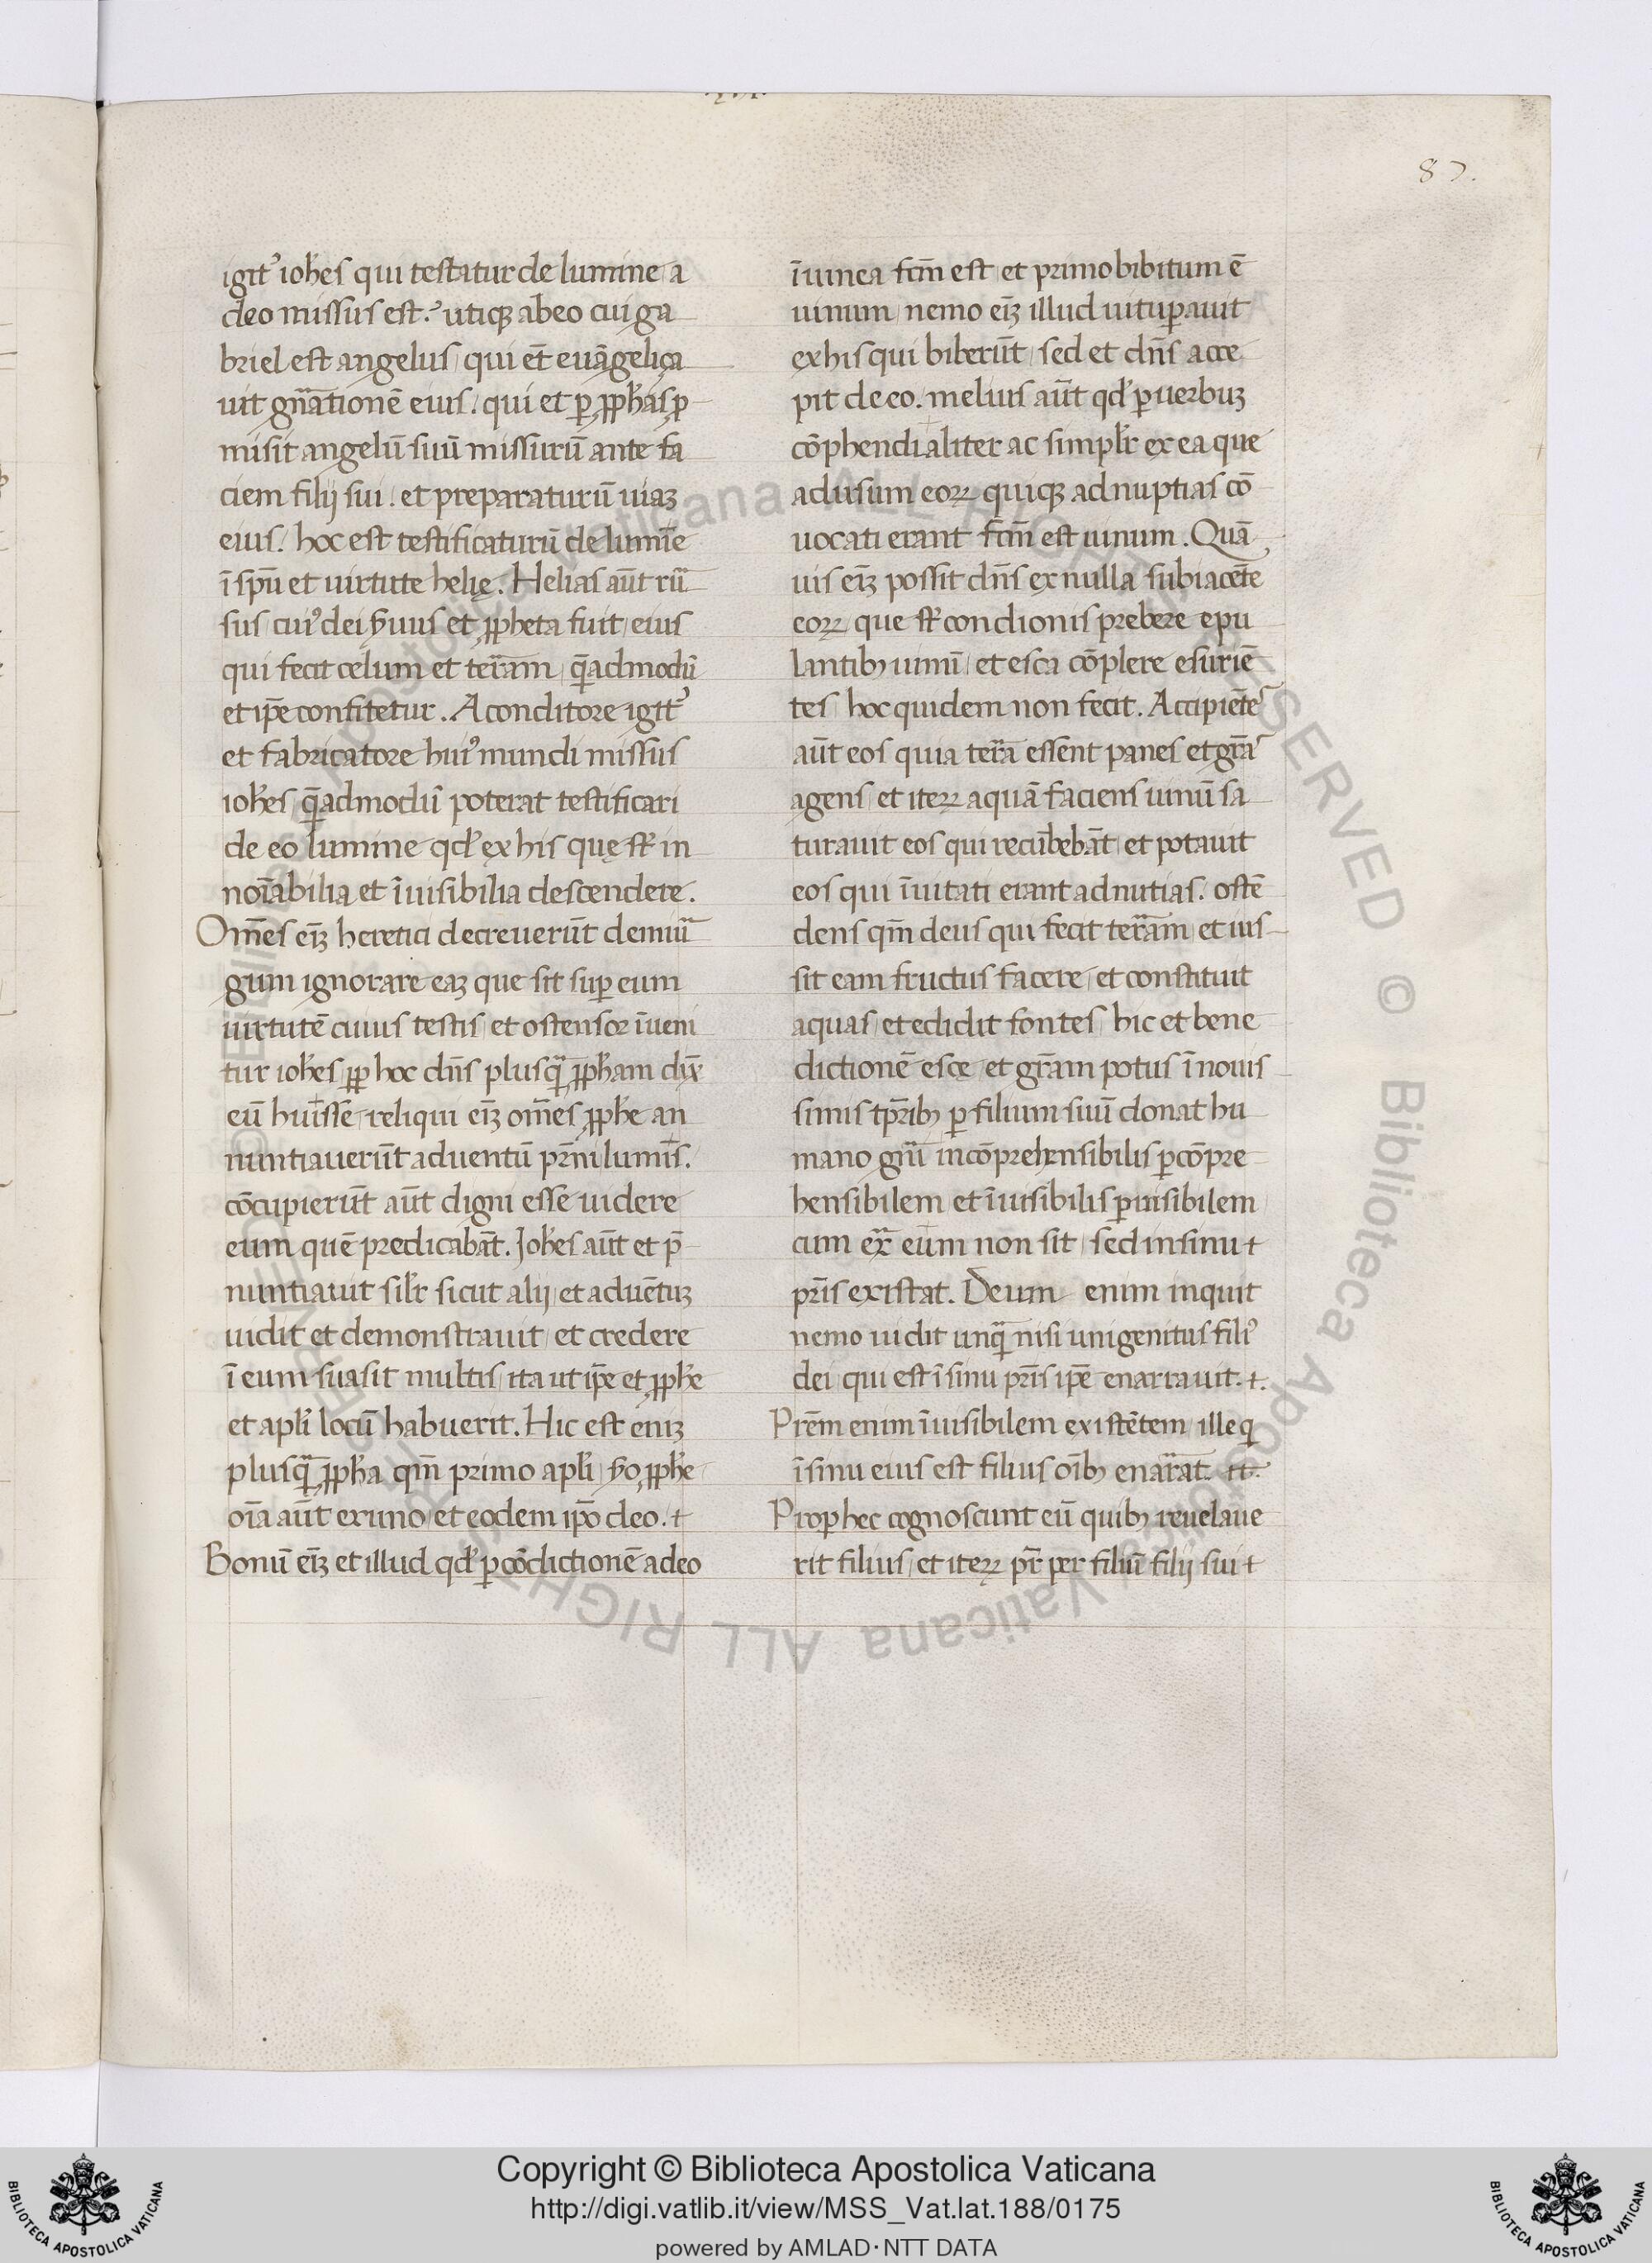 87.
igit᾽ ioħes qui testatur de lumine a
deo missus est? utiqꝫ ab eo cui ga
briel est angelus qui et̄ euāgeliça
uit gnãtionē eius. qui et ꝑ ꝓpħas ꝓ
misit angelū suū missurū ante fa
ciem filij sui. et preparaturū uiaꝫ
eius. hoc est testificaturū de lumīe
ī spū et uirtute helię. Helias aūt rũ
sus cui᾽ dei ẜuus et ꝓpheta fuit eius
qui fecit celum et terãm q̄admodū
et ip̄e confitetur. A conditore igit᾽
et fabricatore hui᾽ mundi missus
ioħes q̄admodū poterat testificari
de eo lumine qd᾽ ex his quę sr̄ in
noīabilia et īuisibilia descendere.
Om̄es eīꝫ heretici decreuerūt demiũ
gum ignorare eaꝫ que sit suꝑ eum
uirtutē cuius testis et ostensor īueni
tur ioħes ꝓp hoc dn̄s plusq̃ ꝓpħam dix̄
eū hui᷑ssē reliqui eīꝫ om̄es ꝓpħe an
nuntiauerūt aduentū pr̄ni lumīs.
cōcupierūt aūt digni esse uidere
eum quē predicabāt. Joħes aūt et p̄
nuntiauit sil̄r sicut alij et aduētuꝫ
uidit et demonstrauit et credere
ī eum suasit multis ita ut ip̄e et ꝓpħe
et apl̄i locū habuerit. Hic est eniꝫ
plusq̃ ꝓpħa qm̄ primo apl̄i ẜo ꝓpħe
oīa aūt ex uno et eodem ip̄o deo. +
Bonū eīꝫ et illud qd᾽ ꝑ cōdictionē a deo
ī uinea fcm̄ est et primo bibitum ē
uinum nemo eīꝫ illud uituꝑauit
ex his qui biberūt sed et dn̄s acce
pit de eo. melius aūt qd᾽ ꝑ uerbuꝫ
cōphendialiter ac simpl̄r ex ea que
ad usum eoꝝ quiqꝫ ad nuptias cō
uocati erant fcm̄ est uinum. Quā
uis eīꝫ possit dn̄s ex nulla subiacēte
eoꝝ que sr̄ condionis prebere epu
lantibꝫ uinū et esca cōplere esuriē
tes hoc quidem non fecit. Accipiēte᾽
aūt eos quia terã essent panes et gr̄a᾽
agens et iteꝝ aquā faciens uinū sa
turauit eos qui recūbebāt et potauit
eos qui īuitati erant ad nutias. ostē
dens qm̄ deus qui fecit terãm et ius
sit eam fructus facere et constituit
aquas et edidit fontes hic et bene
dictionē escę et gr̄am potus ī nouis
simis tp̄ribꝫ ꝑ filium suū donat hu
mano gñi incōprehensibilis ꝑ cōpre
hensibilem et īuisibilis ꝑ uisibilem
cum ex̃ eum non sit sed in sinu +
pr̄is existat. Deum enim inquit
nemo uidit unq̃ nisi unigenitus fili᾽
dei qui est ī sinu pr̄is ip̄e enarrauit. +.
Pr̄em enim īuisibilem existētem ille q̇
ī sinu eius est filius oībꝫ enarãt. ++.
Prop hec cognoscunt eū quibꝫ reuelaue
rit filius et iteꝝ pr̄ per filiū filij sui +
Copyright © Biblioteca Apostolica Vaticana
http://digi.vatlib.it/view/MSS_Vat.lat.188/0175
powered by AMLAD·NTT DATA